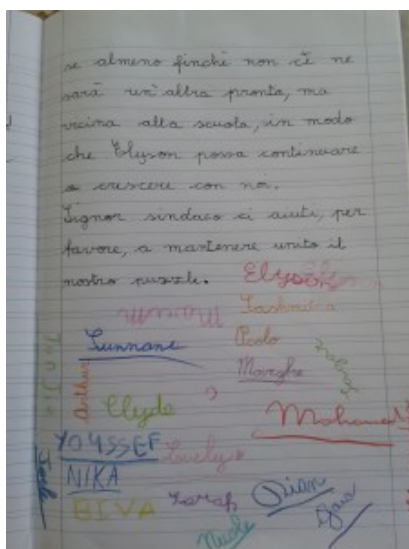 se almeno finché non c'è ne
sarà un'altra pronta, ma
vicina alla scuola, in modo
che Elyson possa continuare
a crescere con noi.
Signor sindaco ci aiuti, per
favore, a mantenere unito il
nostro puzzle.
Elyson
Sunnane
Paolo
Marghe
Arthur
Clyde
Mohamed
YOUSSEF
NIKA
BIVA
Sarah
Dian